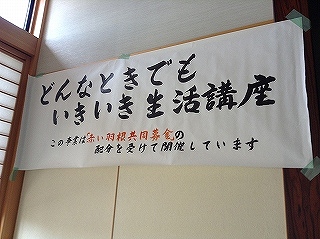 どんなときでも
いきいき生活講座
この事業は"赤い羽根共同募金"の
配分を受けて開催しています